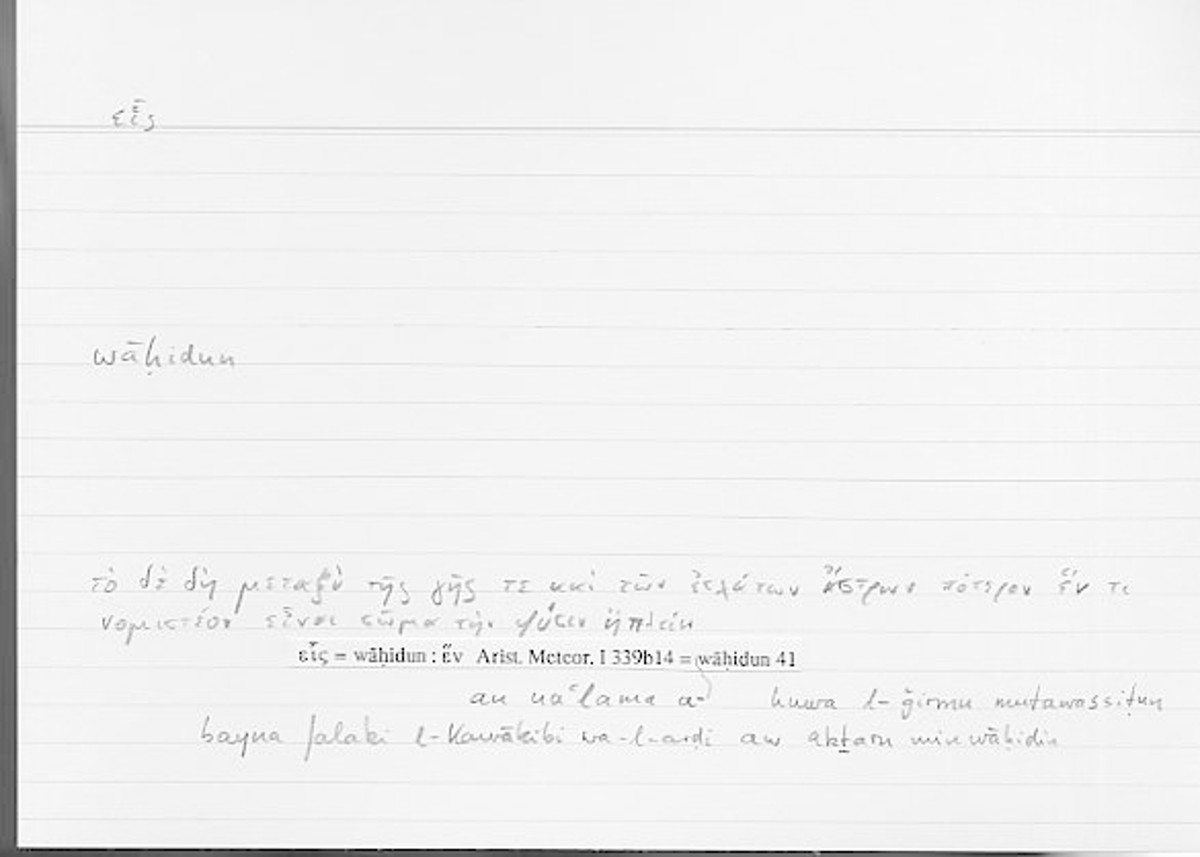 εἷς
wāḥidun
τὸ δὲ δὴ μεταξὺ τῆς γῆς τε καὶ τῶν ἐσχάτων ἄστρων πότερον ἕν τι
νομιστέον εἶναι σῶμα τὴν φύσιν ἢ πλείω
εἷς = wāḥidun : ἕν Arist. Meteor. I 339b14 = wāḥidun 41
an naʿlama a- huwa l-ǧirmu mutawassiṭun
bayna falaki l-kawākibi wa-l-arḍi aw akṯaru min wāḥidin